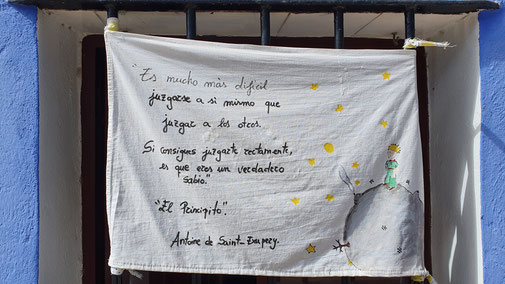 "Es mucho más difícil
juzgarse a si mismo que
juzgar a los otros.
Si consigues juzgarte rectamente,
es que eres un verdadero
sabio."
"El Principito".
Antoine de Saint-Exupery.